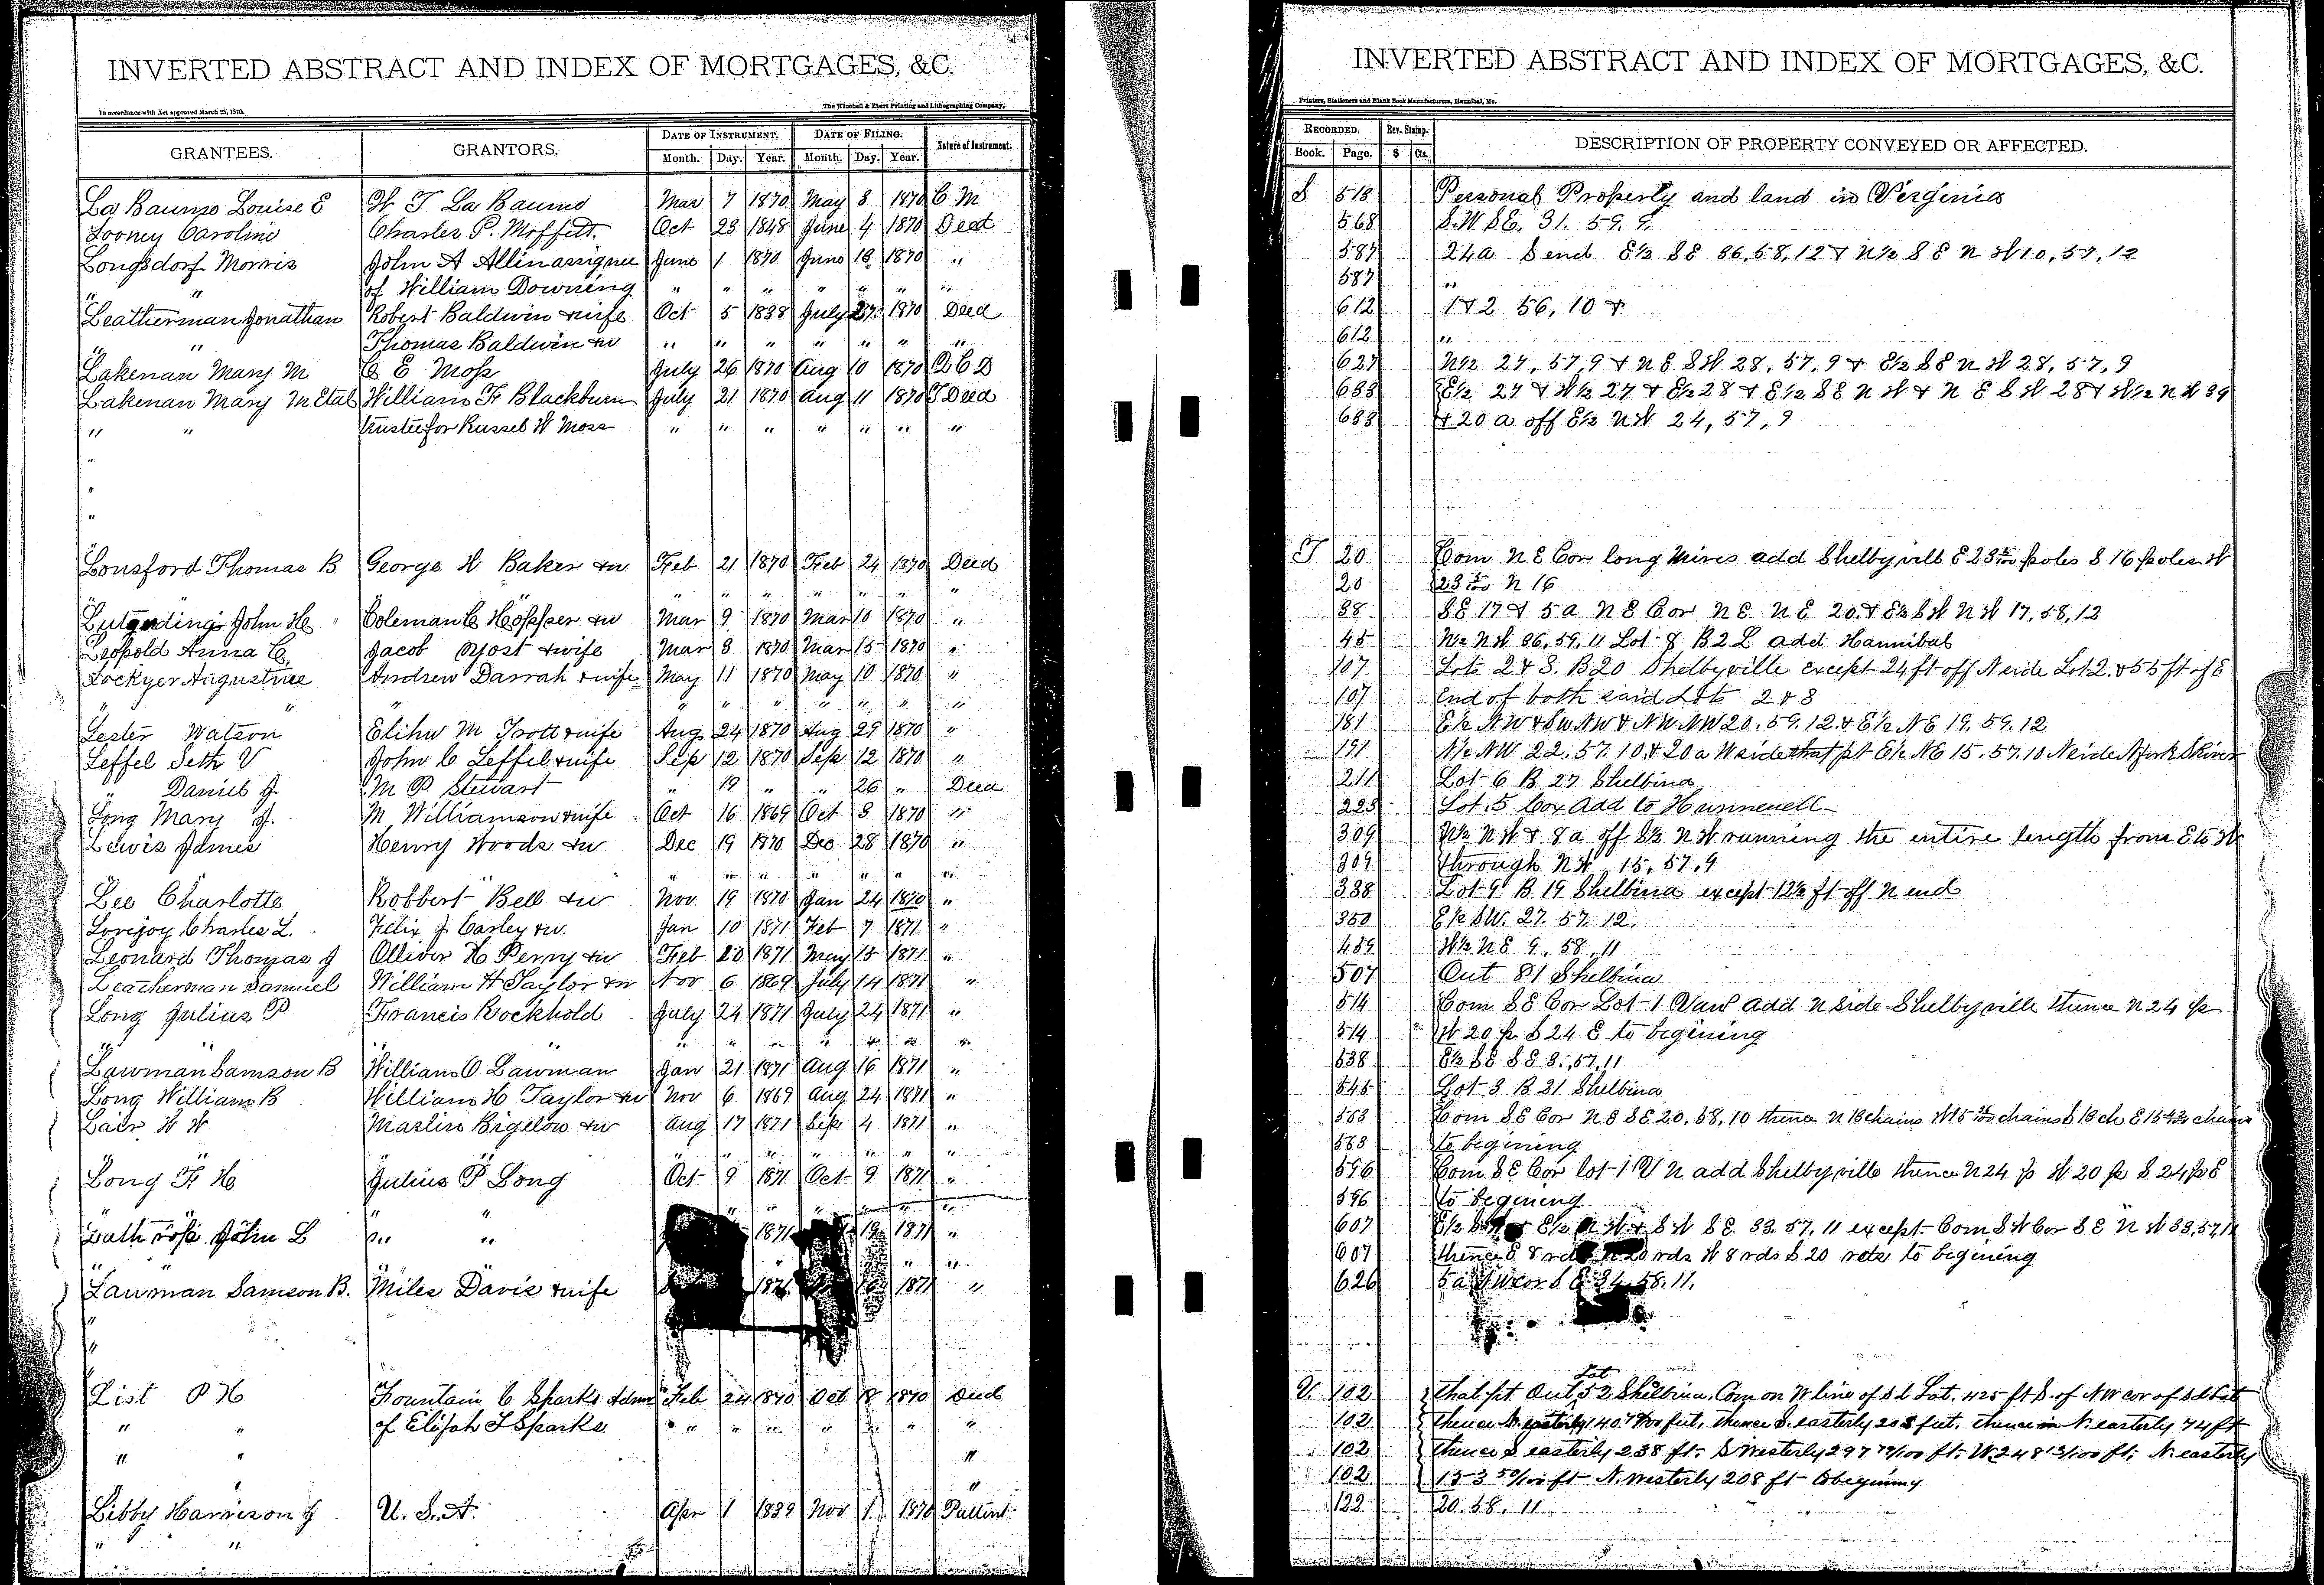 INVERTED ABSTRACT AND INDEX OF MORTGAGES, &C.
In accordance with Act approved March 25, 1870.
The Winchell & Ebert Printing and Lithographing Company,
GRANTEES. GRANTORS. DATE OF INSTRUMENT. DATE OF FILING. Nature of Instrument.
Month. Day. Year. Month. Day. Year.
La Baume Louise E W T La Baume Mar 7 1870 May 3 1870 C M
Looney Caroline Charles P. Moffett Oct 23 1848 June 4 1870 Deed
Longsdorf Morris John A Allin assignee June 1 1870 June 18 1870 "
" " of William Downing " " " " " " "
Leatherman Jonathan Robert Baldwin & wife Oct 5 1838 July 27 1870 Deed
" " Thomas Baldwin & w " " " " " " "
Lakenan Mary M C E Moss July 26 1870 Aug 10 1870 Q C D
Lakenan Mary M Etal William F Blackburn July 21 1870 Aug 11 1870 T Deed
" " trustee for Russel W Moss " " " " " " "
"
"
"
Lonsford Thomas B George W Baker & w Feb 21 1870 Feb 24 1870 Deed
" " " " " " " "
Lutgerding John H Coleman C Hopper & w Mar 9 1870 Mar 10 1870 "
Leopold Anna C Jacob Yost & wife Mar 3 1870 Mar 15 1870 "
Lockyer Augustine Andrew Darrah & wife May 11 1870 May 10 1870 "
" " " " " " " " "
Lester Watson Elihu M Trott & wife Aug 24 1870 Aug 29 1870 "
Leffel Seth V John C Leffel & wife Sep 12 1870 Sep 12 1870 "
" Daniel J. M P Stewart " 19 " " 26 " Deed
Long Mary J. M Williamson & wife Oct 16 1869 Oct 3 1870 "
Lewis James Henry Woods & w Dec 19 1870 Dec 28 1870 "
" " " " " " " "
Lee Charlotte Robbert Bell & w Nov 19 1870 Jan 24 1870 "
Lovejoy Charles L. Felix J Carley & w. Jan 10 1871 Feb 7 1871 "
Leonard Thomas J Olliver H Perry & w Feb 20 1871 May 15 1871 "
Leatherman Samuel William H Taylor & w Nov 6 1869 July 14 1871 "
Long Julius P Francis Rockhold July 24 1871 July 24 1871 "
" " " " " " " " "
Lawman Samson B William O Lawman Jan 21 1871 Aug 16 1871 "
Long William B William H Taylor & w Nov 6 1869 Aug 24 1871 "
Lair W W Maslin Bigelow & w Aug 17 1871 Sep 4 1871 "
" " " " " " " "
Long F H Julius P Long Oct 9 1871 Oct 9 1871 "
" " " " " " "
John L " " 1871 19 1871 "
" " " " "
Lawman Samson B. Miles Davis & wife 1871 1871 "
"
"
List P H Fountain C Sparks Adm Feb 24 1870 Oct 18 1870 Deed
" " of Elijah T Sparks " " " " " " "
" " "
" "
Libby Harrison J U. S. A Apr 1 1839 Nov 1 1870 Pattent
" "
INVERTED ABSTRACT AND INDEX OF MORTGAGES, &C.
Printers, Stationers and Blank Book Manufacturers, Hannibal, Mo.
RECORDED. Rev. Stamp. DESCRIPTION OF PROPERTY CONVEYED OR AFFECTED.
Book. Page. $ Cts.
S 518 Personal Property and land in Virginia
568 S.W SE. 31. 59. 9.
587 24a S end E½ SE 36,58,12 & N½ SE N W 10,57,12
587 "
612 1 & 2 56, 10 &
612 "
627 N½ 27, 57, 9 & N E S W 28, 57, 9 & E½ S E N W 28, 57, 9
633 E½ 27 & W½ 27 & E½ 28 & E½ S E N W & N E S W 28 & W½ N W 39
633 & 20 a off E½ N W 24, 57, 9
T 20 Com N E Cor long Mires add Shelbyville E 23 poles S 16 poles W
20 23 N 16
38 S E 17 & 5 a N E Cor N E N E 20. & E½ S W N W 17, 58, 12
45 W½ N W 36, 59, 11 Lot 8 B 2 L add Hannibal
107 Lots 2 & 3. B 20 Shelbyville except 24 ft off N side Lot 2. & 55 ft of E
107 End of both said Lots 2 & 3
181 E½ NW & SW NW & NW NW 20. 59. 12. & E½ NE 19. 59. 12
191 N½ NW 22. 57. 10. & 20 a W side that pt E½ NE 15. 57. 10 N side N fork S River
211 Lot 6 B 27 Shelbina
225 Lot 5 Cox Add to Hunnewell
309 W½ N W & 8 a off S½ N W running the entire length from E to W
309 through N W 15, 57, 9
338 Lot 9 B 19 Shelbina except 12½ ft off N end
350 E½ SW. 27. 57. 12.
489 W½ N E 9, 58, 11
507 Out 81 Shelbina
514 Com S E Cor Lot 1 Van add N side Shelbyville thence N 24 p
514 W 20 p. S 24 E to begining
538 E½ S E S E 8, 57, 11
545 Lot 3 B 21 Shelbina
563 Com S E Cor N E S E 20, 58, 10 thence N 13 chains W 15 chains S 13 ch E 15 chains
563 to begining
596 Com S E Cor lot 1 V N add Shelbyville thence N 24 p W 20 p S 24 p E
596 to begining
607 E½ S W & S W S E 33. 57. 11 except Com S W Cor S E N W 33, 57, 11
607 thence E 8 rds N 20 rds W 8 rds S 20 rods to begining
626 5 a N W cor S E 34. 58. 11.
U. 102 that pt Out Lot 52 Shelbina. Com on W line of sd Lot. 425 ft S. of N W cor of sd Lot
102 thence N easterly 140 feet, thence S. easterly 208 feet, thence in N. easterly 74 ft
102 thence S easterly 238 ft. S Westerly 297 ft. W 248 ft. N. easterly
102 153 50/100 ft N. Westerly 208 ft begining
122 20. 58. 11.